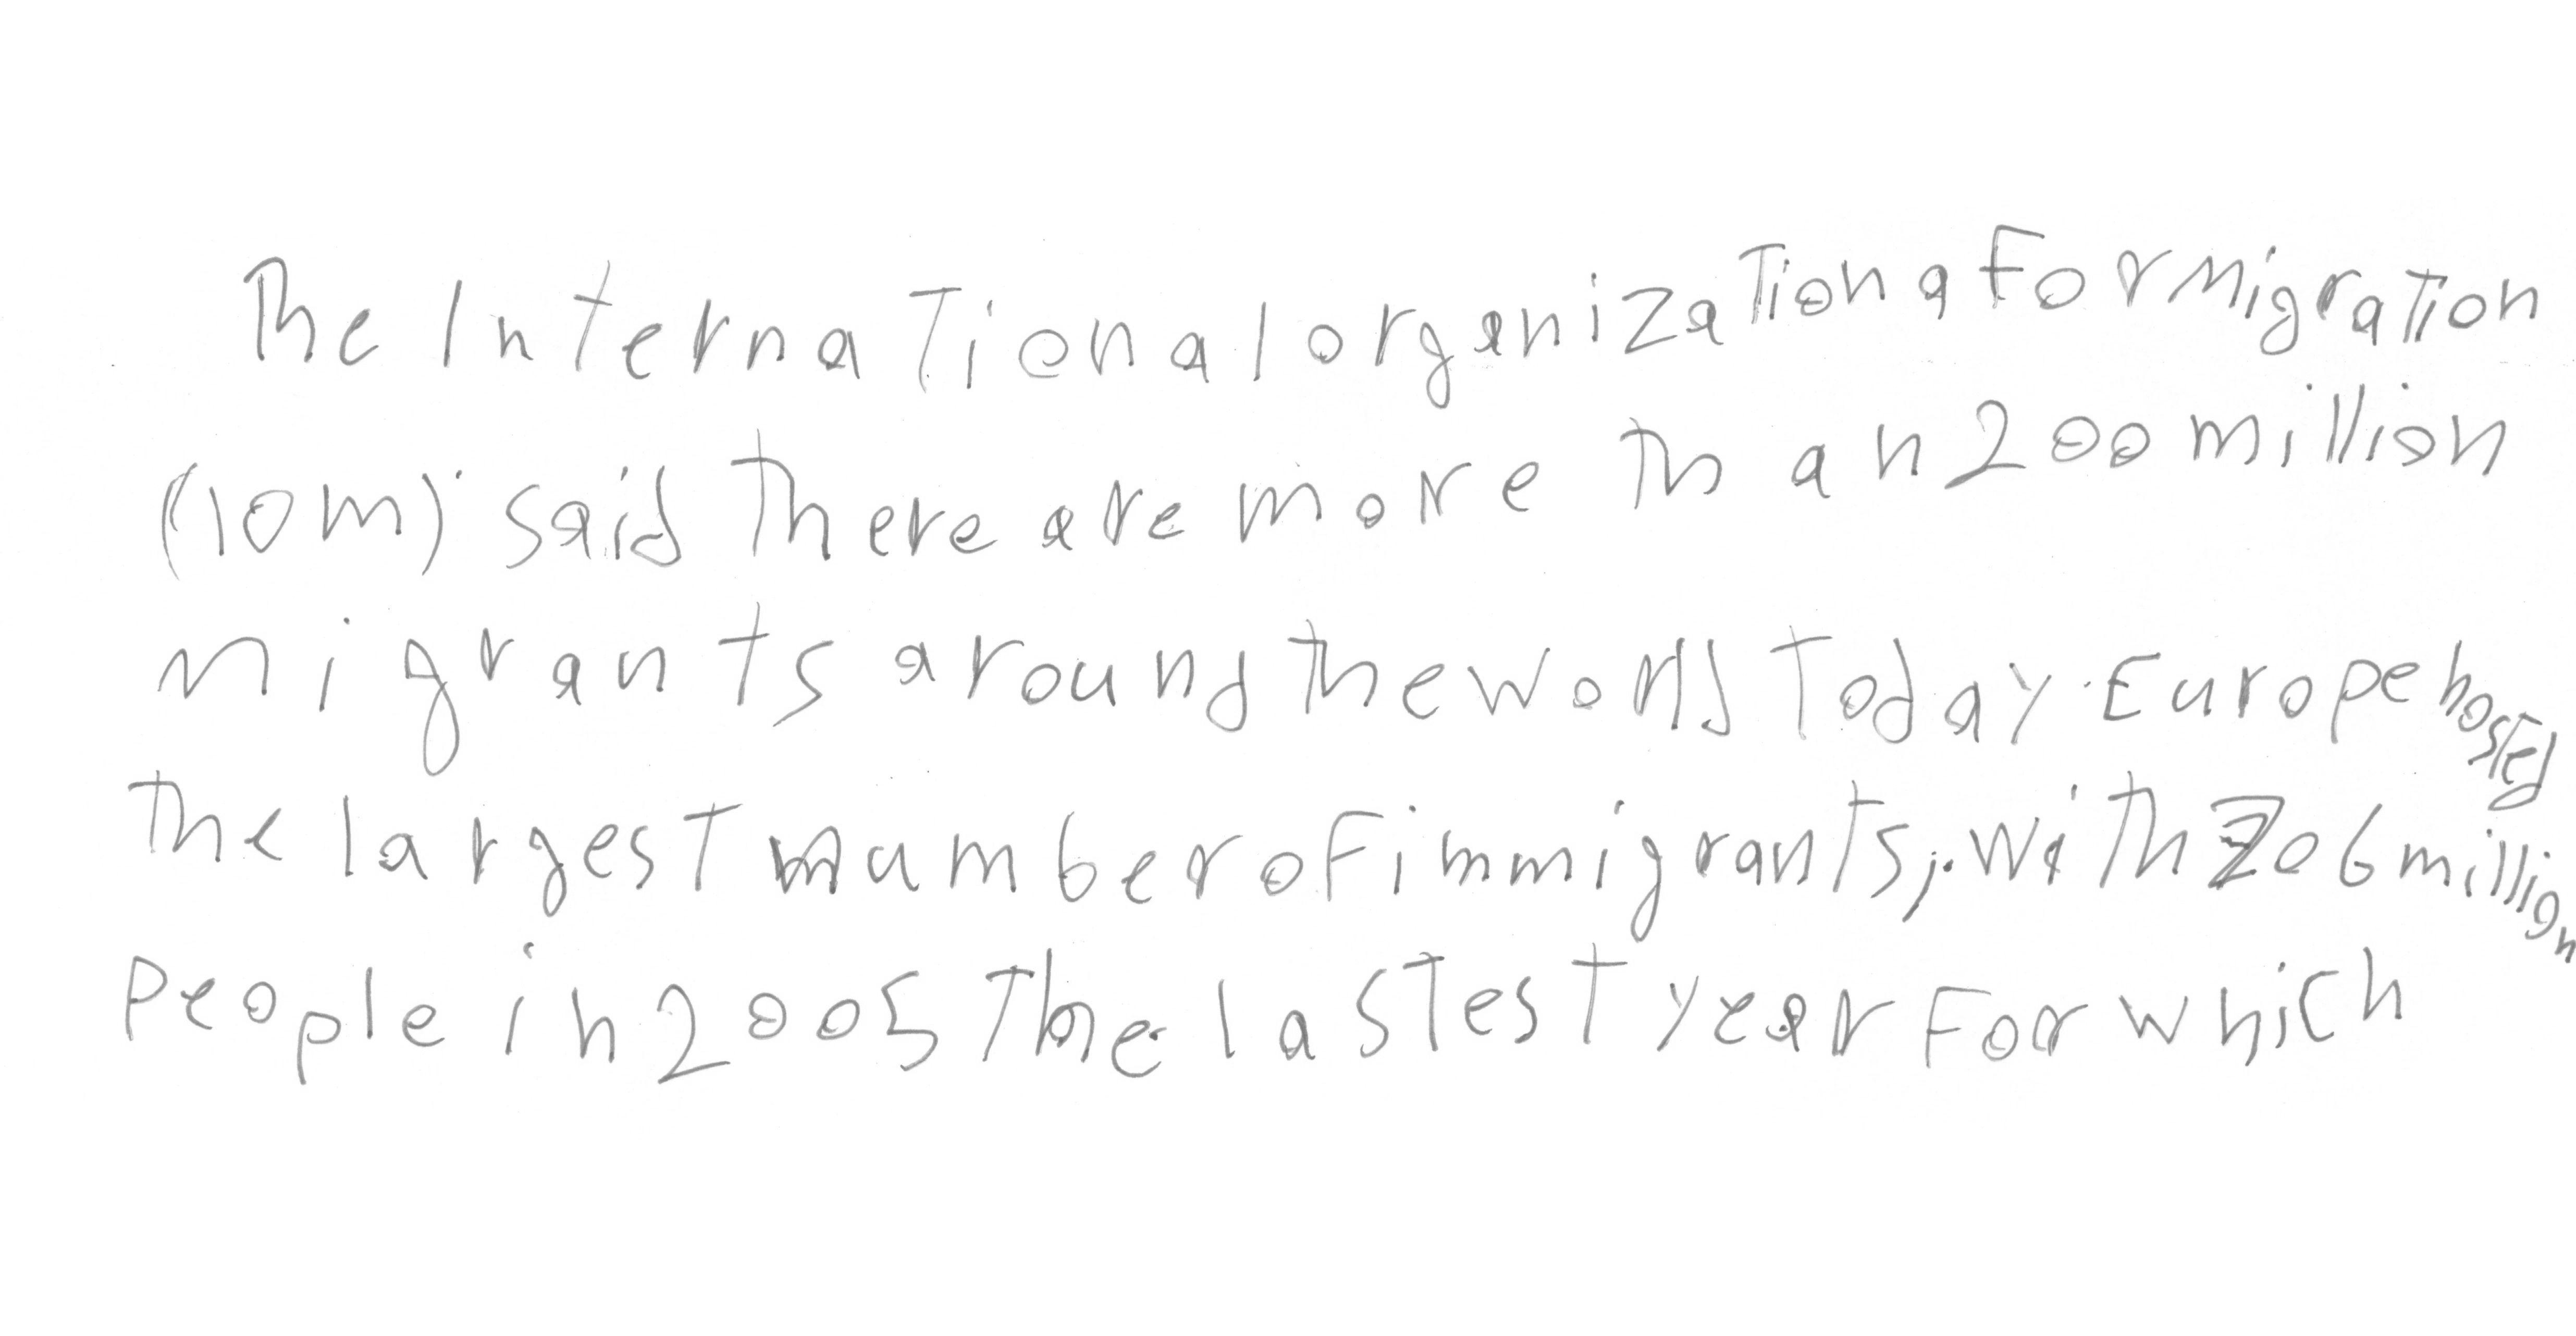 The International organization a For Migration
(10m) said There are more Than 200 million
migrants around the world Today. Europe hosted
The largest mumber of immigrants, with 206 million
People in 2005 The lastest year For which